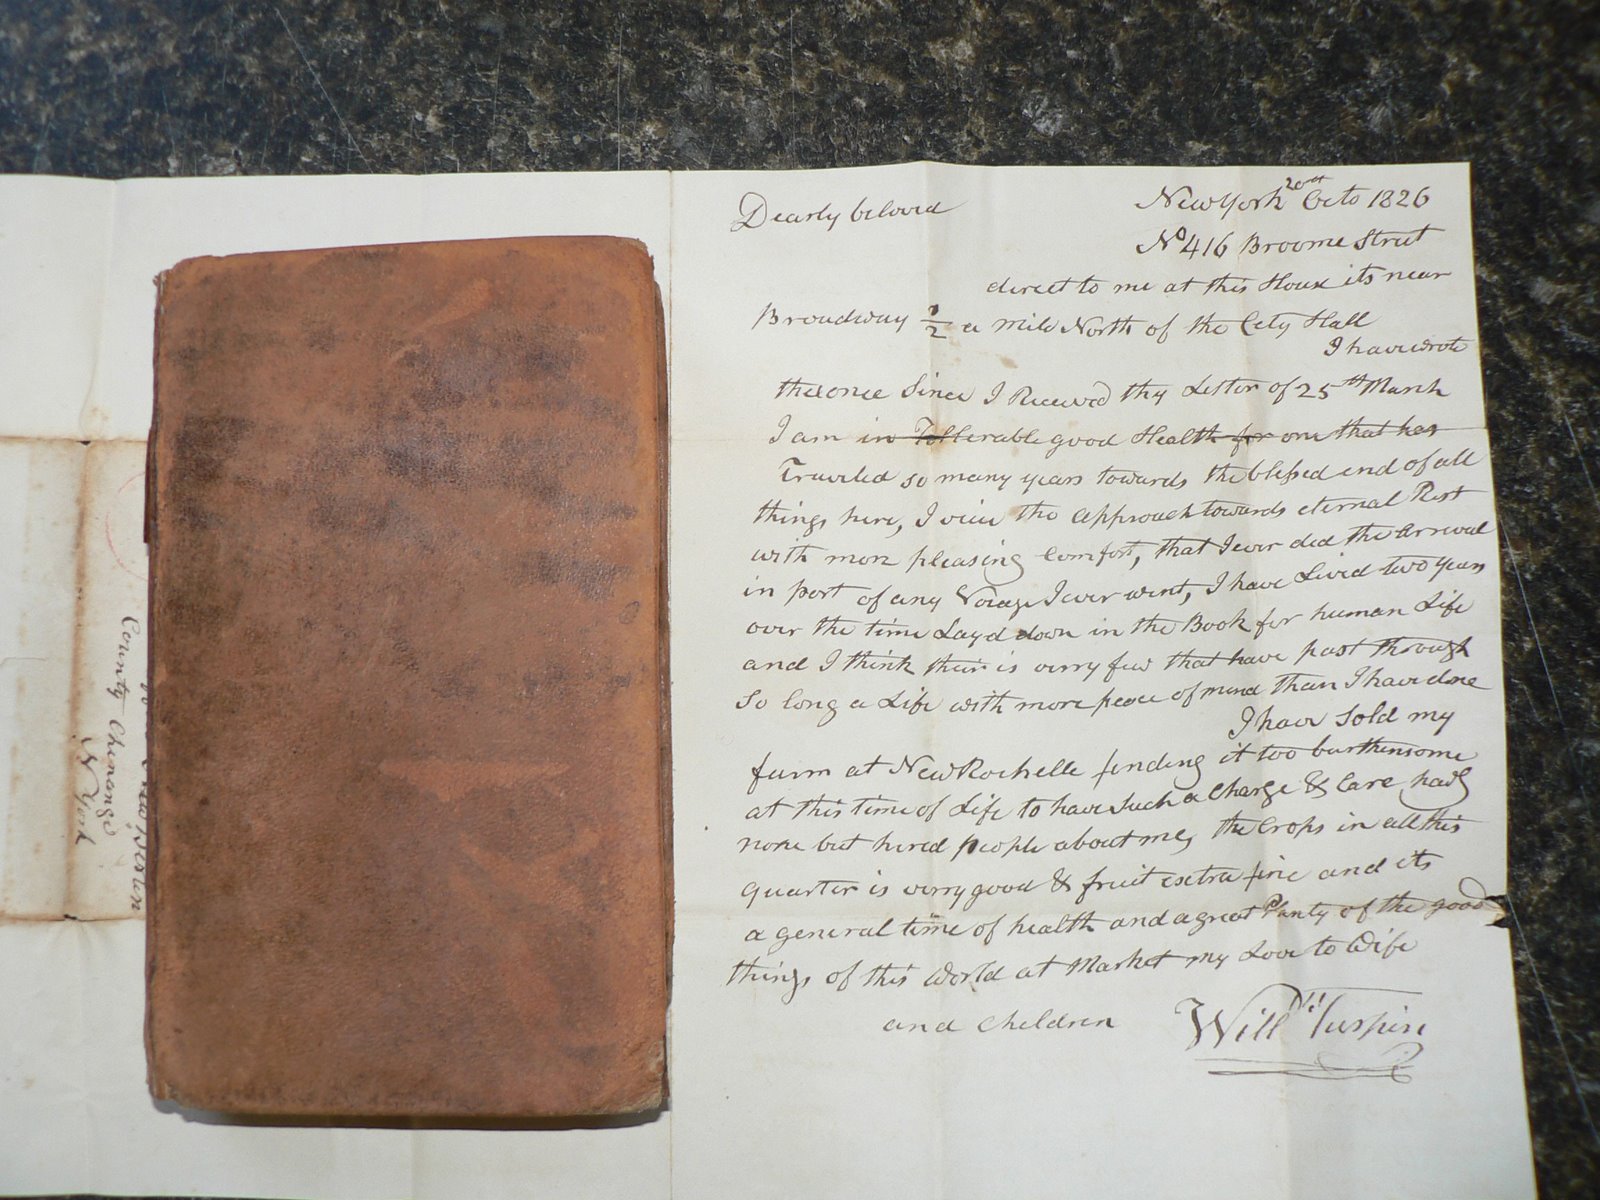 County Chenango
N York
Dearly beloved
New York 20th Octo 1826
No 416 Broome Street
direct to me at this House its near
Broadway 1/2 a mile North of the City Hall
I have wrote
thee once Since I Received thy Letter of 25th March
I am in Tollerable good Health for one that has
Traveled so many years towards the blessed end of all
things here, I view the approach towards eternal Rest
with more pleasing Comfort, that I ever did the Arrival
in port of any Voiage I ever went, I have Lived two years
over the time Layd down in the Book for human Life
and I think their is verry few that have past through
So long a Life with more peace of mind than I have done
I have Sold my
farm at New Rochelle finding it too burthensome
at this time of Life to have Such a Charge & Care havg
none but hired people about me, the Crops in all this
quarter is verry good & fruit extra fine and its
a general time of health and a great Plenty of the good
things of this World at Market my Love to Wife
and Children Willm Turpin